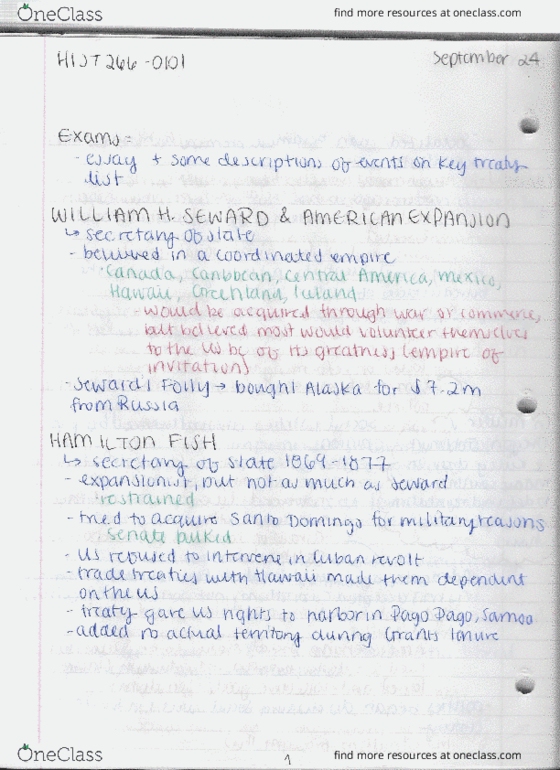 OneClass find more resources at oneclass.com
HIST266-0101 September 24
Exams =
- essay + some descriptions of events on key treaty
list
WILLIAM H. SEWARD & AMERICAN EXPANSION
↳ secretary of state
- believed in a coordinated empire
· Canada, Caribbean, Central America, Mexico,
Hawaii, Greenland, Iceland
- would be acquired through war or commerce,
but believed most would volunteer themselves
to the US bc of its greatness (empire of
invitation)
- Seward's Folly → bought Alaska for $7.2m
from Russia
HAMILTON FISH
↳ secretary of state 1869-1877
- expansionist, but not as much as Seward
restrained
- tried to acquire Santo Domingo for military reasons
Senate balked
- US refused to intervene in Cuban revolt
- trade treaties with Hawaii made them dependent
on the US
- treaty gave US rights to harbor in Pago Pago, Samoa
- added no actual territory during Grants tenure
OneClass 1 find more resources at oneclass.com